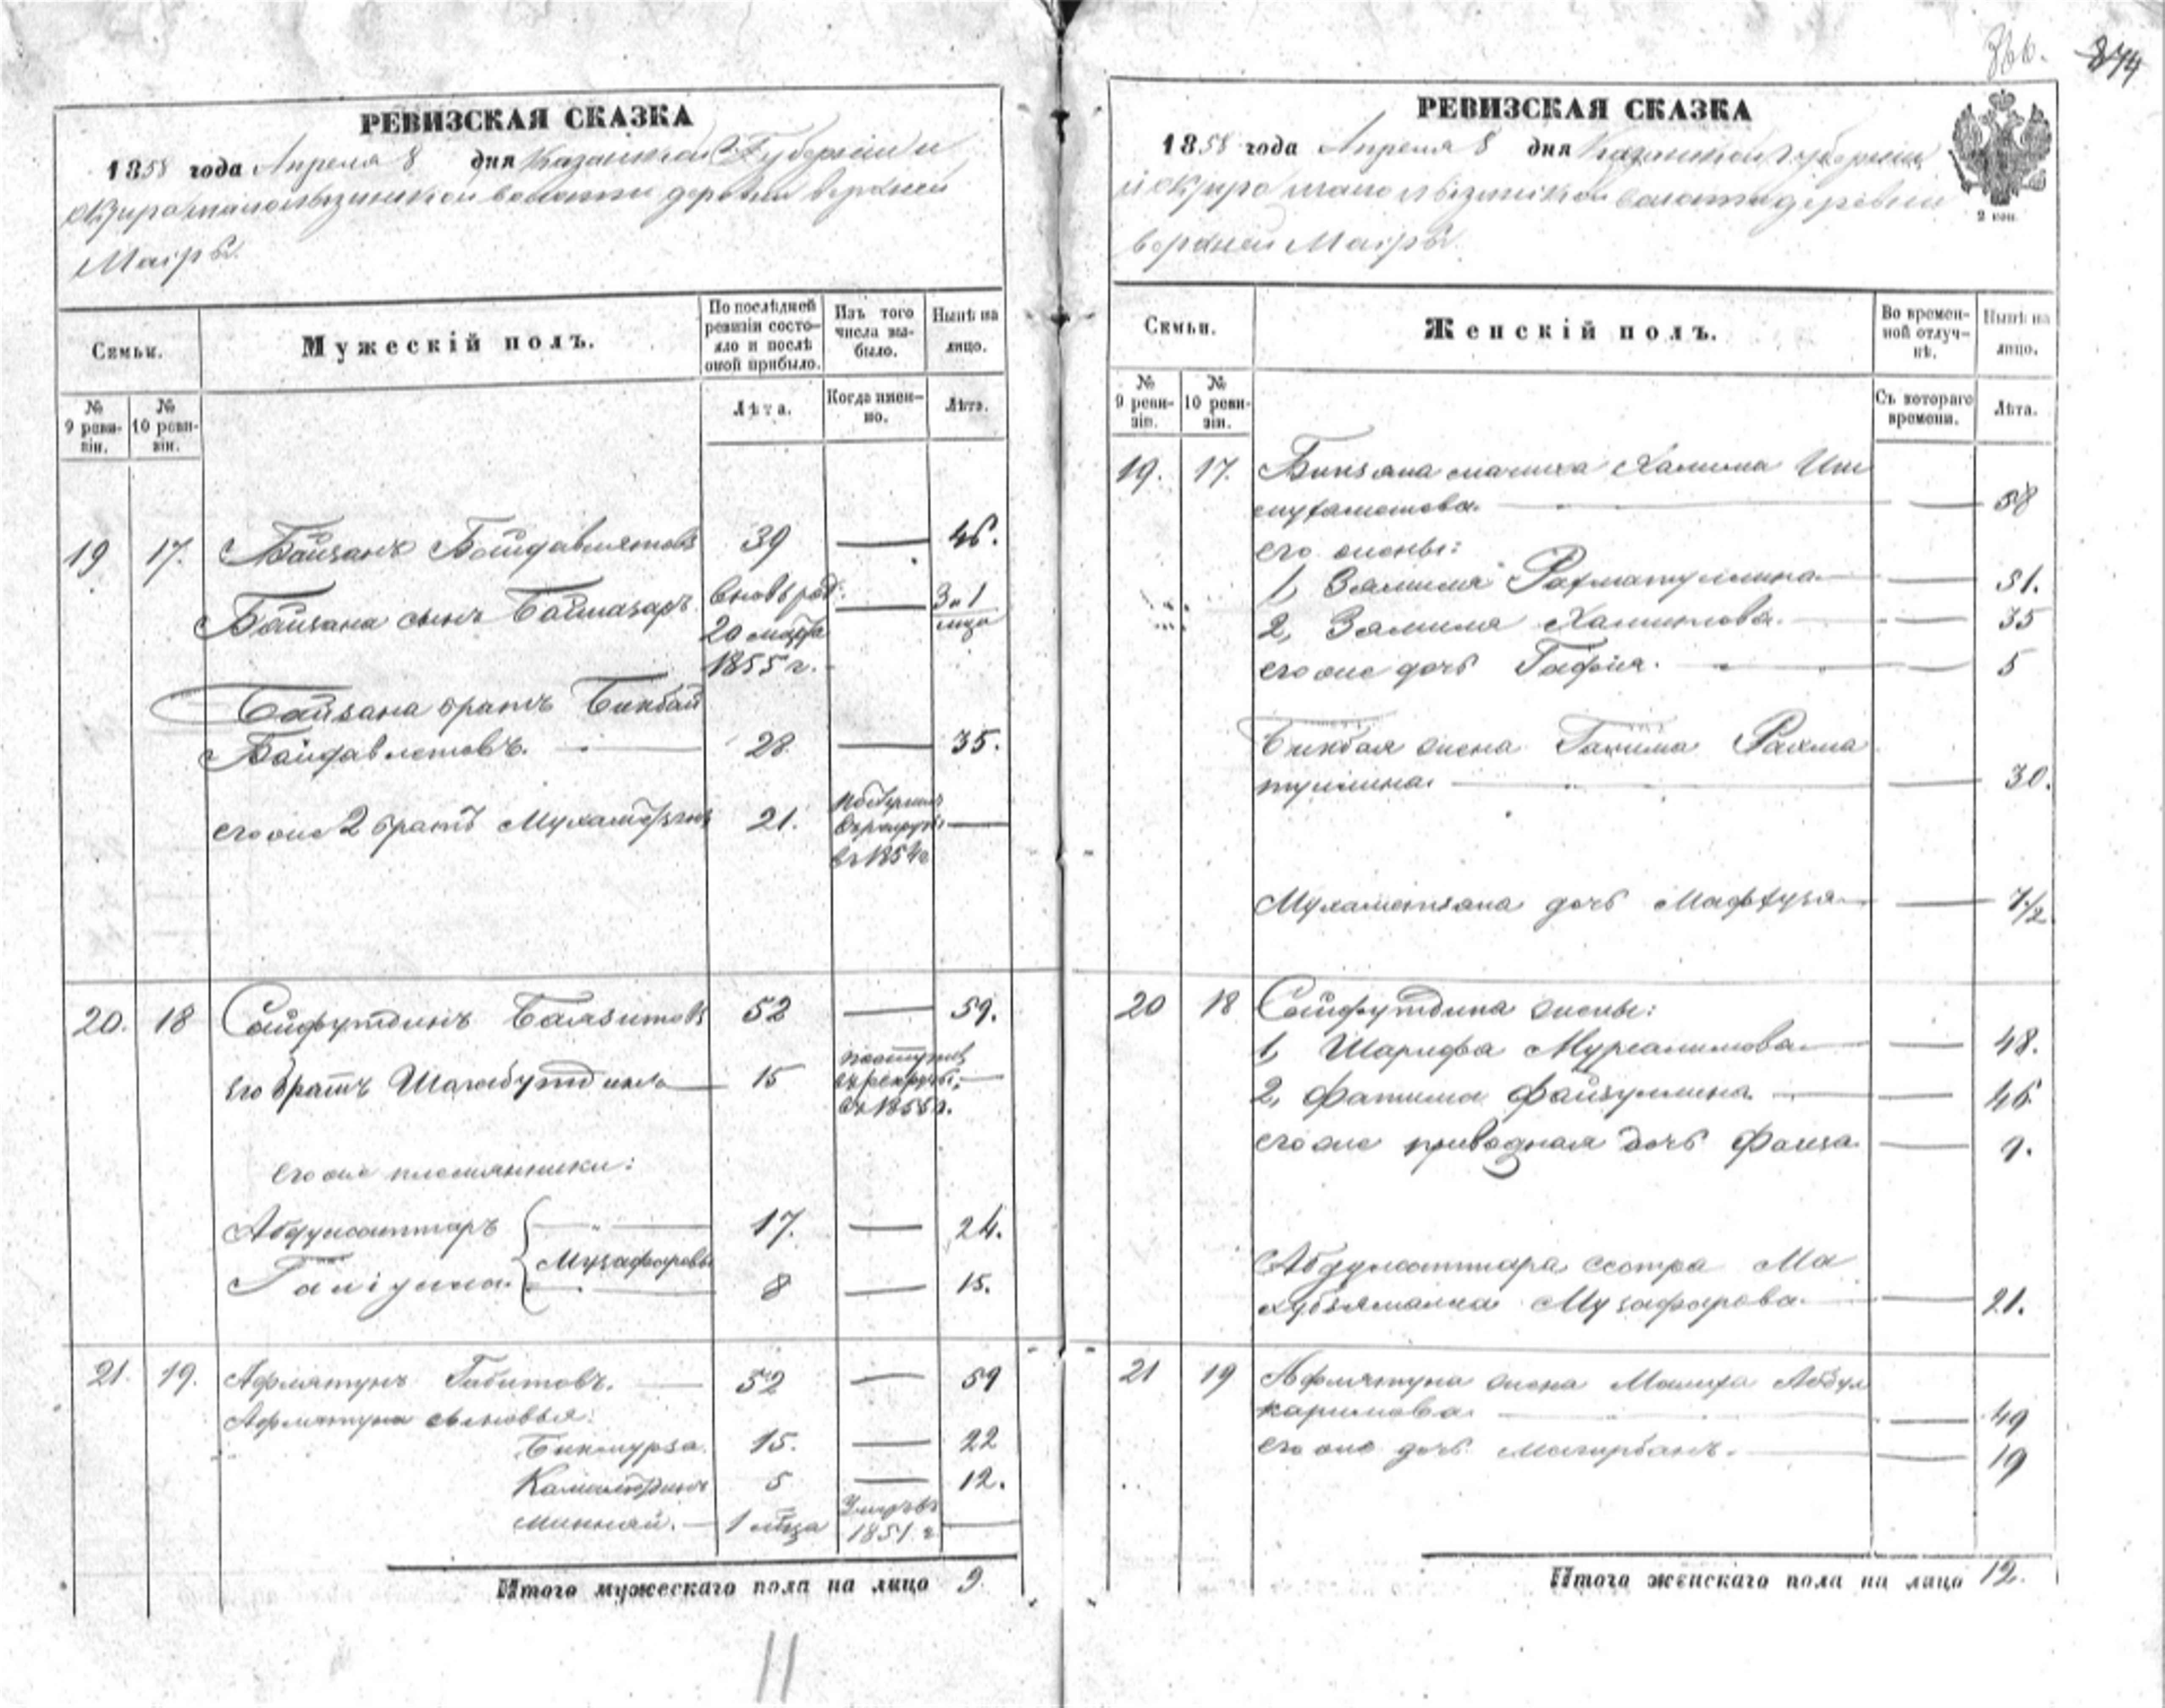 866. 874
РЕВИЗСКАЯ СКАЗКА
1858 года Апреля 8 дня Казанской Губернии и
округа волости деревни верхней
РЕВИЗСКАЯ СКАЗКА
1858 года Апреля 8 дня Казанской губернии
и округа волости деревни
верхней
2 коп.
Семьи.
Мужескій полъ.
По послѣдней ревизіи состояло и послѣ оной прибыло.
Изъ того числа выбыло.
Нынѣ на лицо.
№ 9 ревизіи.
№ 10 ревизіи.
Лѣта.
Когда именно.
Лѣта.
19 17. Байзанъ Байдавлятовъ 39 — 46.
Байзана сынъ Баймазаръ вновь рож. — 3 и 1
20 марта
1855 г.
Байзана братъ Бикбай
Байдавлетовъ. — 28 — 35.
его же 2 братъ 21. —
въ 1854 г
20. 18 Сайфутдинъ Баязитовъ 52 — 59.
его братъ 15 —
его же племянники:
Абдулсаттаръ 17. — 24.
Музафаровы
8 — 15.
21. 19. Афлятунъ Габитовъ. — 52 — 59
Афлятуна сыновья:
Бикмурза. 15. — 22
5 — 12.
Миннай. — 1 мѣца Умеръ въ
1851. г. —
Итого мужескаго пола на лицо 9.
11
Семьи.
Женскій полъ.
Во временной отлучкѣ.
Нынѣ на лицо.
№ 9 ревизіи.
№ 10 ревизіи.
Съ котораго времени.
Лѣта.
19. 17. мачиха Халима
— — 58
его жены:
1, Зямиля Рахматуллина — — 51.
2, Зямиля — — 35
его же дочь Гафия. — — 5
Бикбая жена Рахма
туллина. — — 30.
Мухаметзяна дочь — — 7½
20 18 Сайфутдина жены:
1, Шарифа — — 48.
2, Фатима Файзуллина. — — 46
его же приводная дочь Фаиза — 9.
Абдулсаттара сестра Ма
Музафарова. — — 21.
21 19 Афлятуна жена Абдул
каримова. — — 49
его же дочь — — 19
Итого женскаго пола на лицо 12.